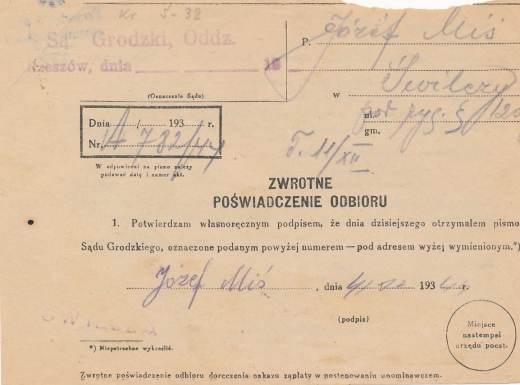 Kr 5-32
Są Grodzki, Oddz.
Rzeszów, dnia 19
(Oznaczenie Sądu)
P. Józef Miś
w Świlczy
ul. pod ryg. § 120
gm.
Dnia 193 r.
Nr. 782/44
T. 11/XII
W odpowiedzi na pismo należy
podawać datę i numer akt.
ZWROTNE
POŚWIADCZENIE ODBIORU
1. Potwierdzam własnoręcznym podpisem, że dnia dzisiejszego otrzymałem pismo
Sądu Grodzkiego, oznaczone podanym powyżej numerem — pod adresem wyżej wymienionym.*)
Józef Miś, dnia 193 r.
(podpis)
Miejsce
na stempel
urzędu poczt.
*) Niepotrzebne wykreślić.
Zwrotne poświadczenie odbioru doręczenia nakazu zapłaty w postępowaniu upominawczem.